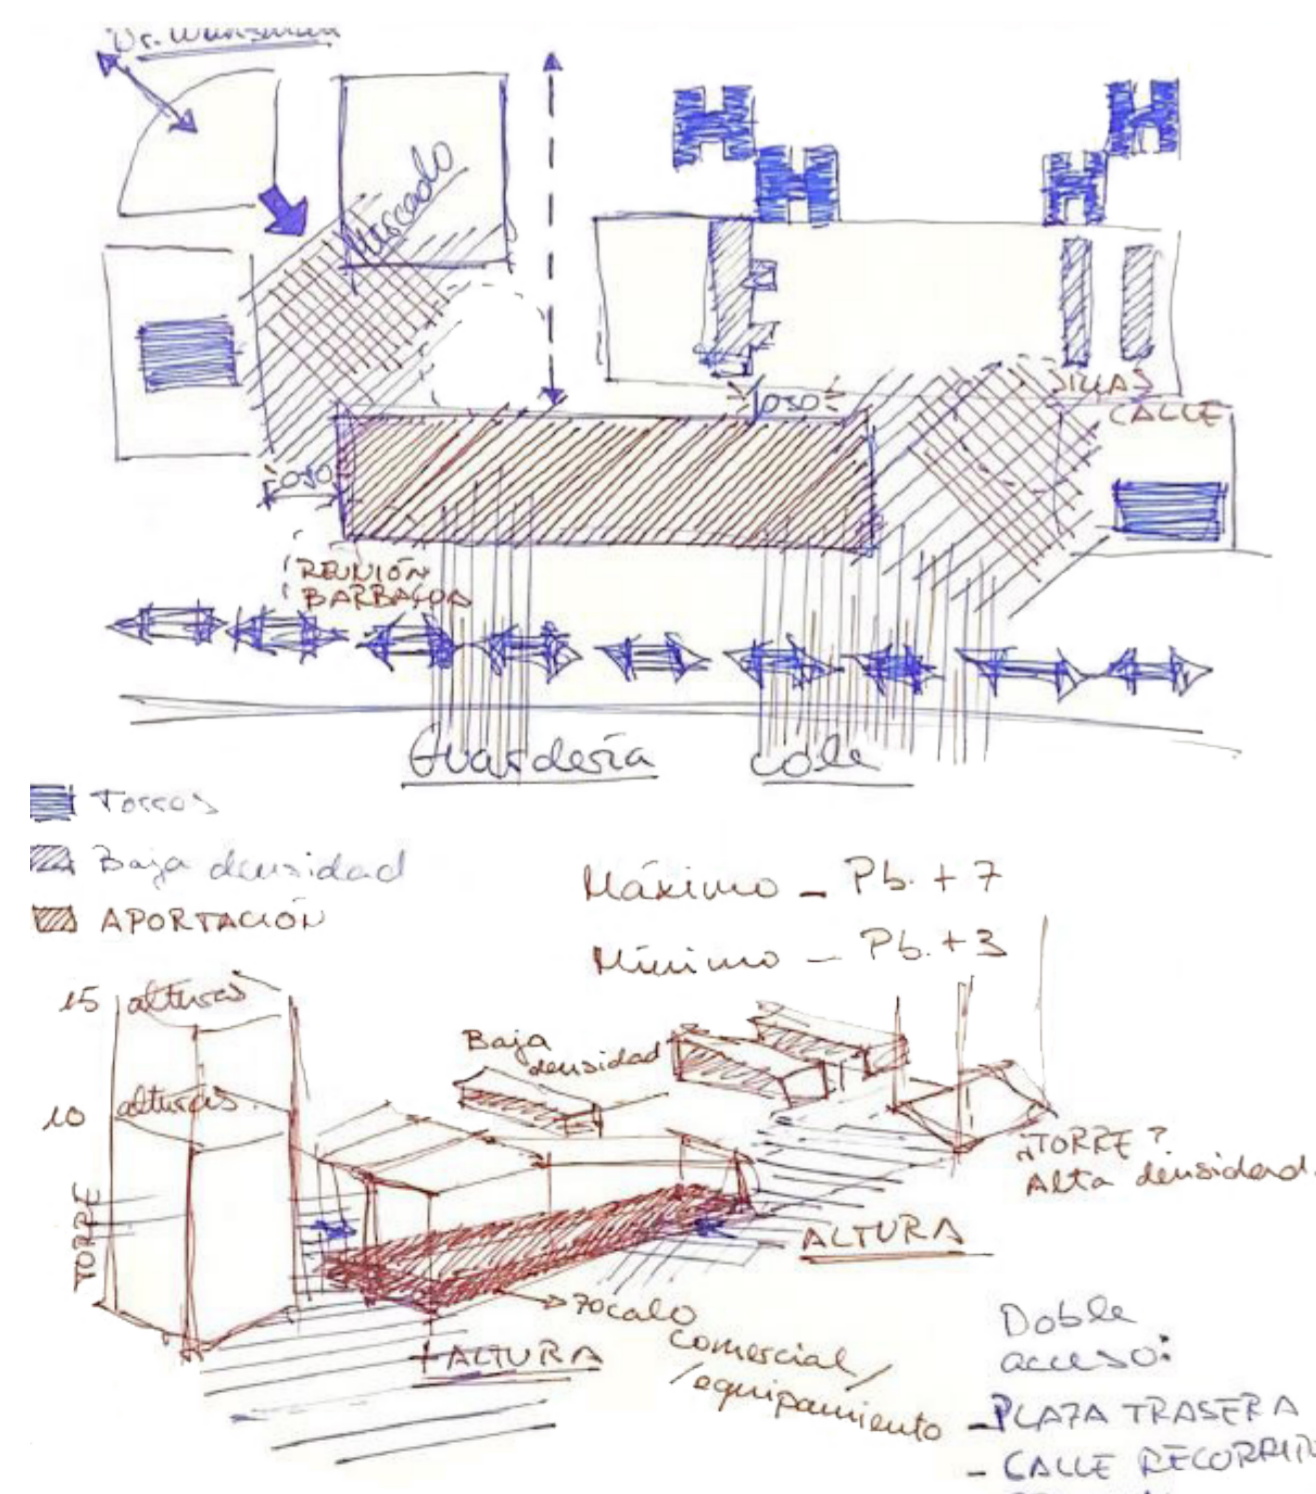 Mercado
¡OJO!
SILLAS
CALLE
¡OJO!
REUNIÓN
BARBACOA
Guardería
cole
Torres
Baja densidad
APORTACIÓN
Máximo - Pb. + 7
Mínimo - Pb. + 3
15 alturas
Baja
densidad
10 alturas
TORRE
¿TORRE?
Alta densidad.
ALTURA
zocalo
comercial/
/equipamiento
+ALTURA
Doble
acceso:
- PLAZA TRASERA
- CALLE